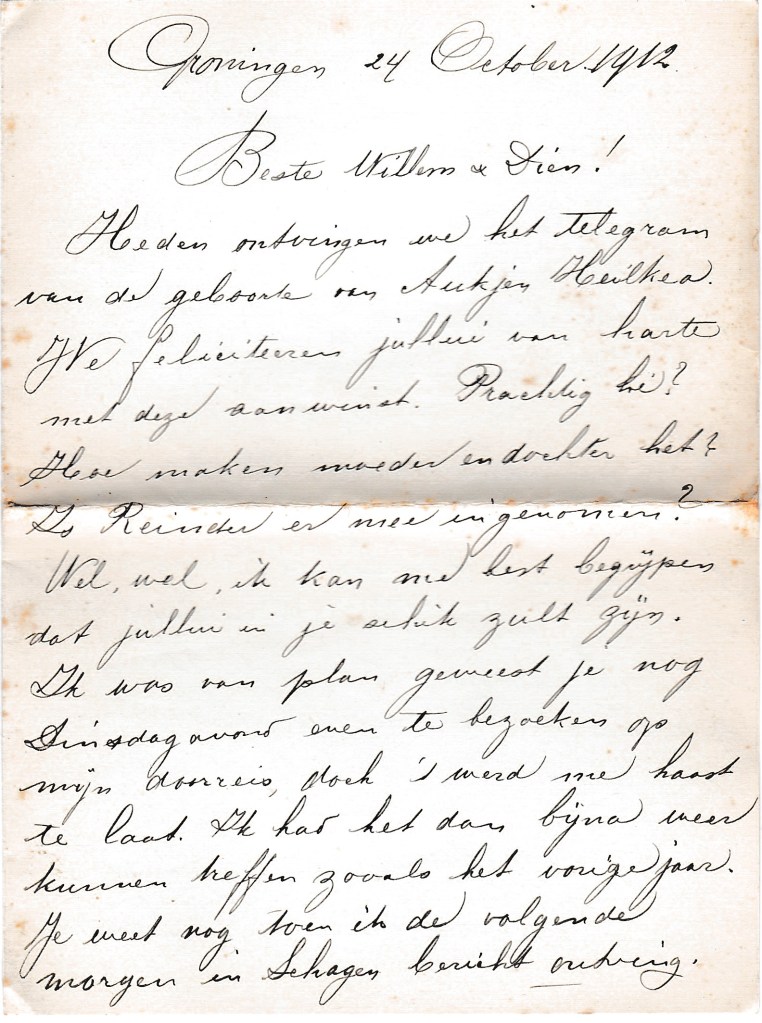 Groningen 24 October 1912.
Beste Willem & Dien!
Heden ontvingen we het telegram
van de geboorte van Aukjen Heilkea.
We feliciteeren jullui van harte
met deze aanwinst. Prachtig hè?
Hoe maken moeder en dochter het?
Is Reinder er mee ingenomen?
Wel, wel, ik kan me best begrijpen
dat jullui in je schik zult zijn.
Ik was van plan geweest je nog
Dinsdagavond even te bezoeken op
mijn doorreis, doch 't werd me haast
te laat. Ik had het dan bijna weer
kunnen treffen zooals het vorige jaar.
Je weet nog toen ik de volgende
morgen in Schagen bericht ontving.